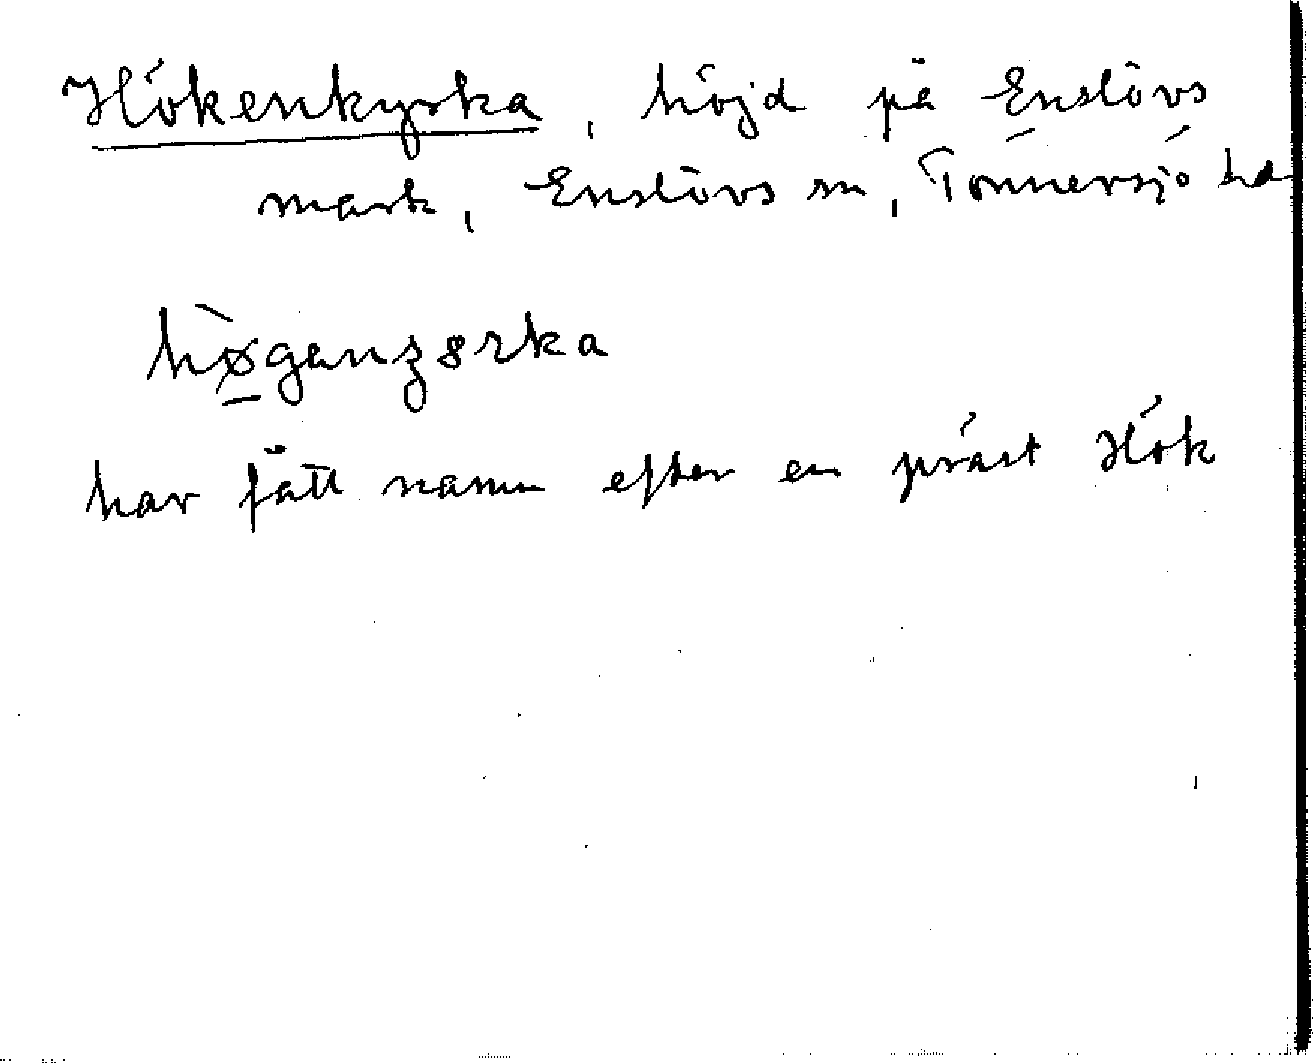 Hökenkyrka, höjd på Enslövs
mark, Enslövs sn, Tönnersjö hd
hø̀gançɜrka
har fått namn efter en präst Hök